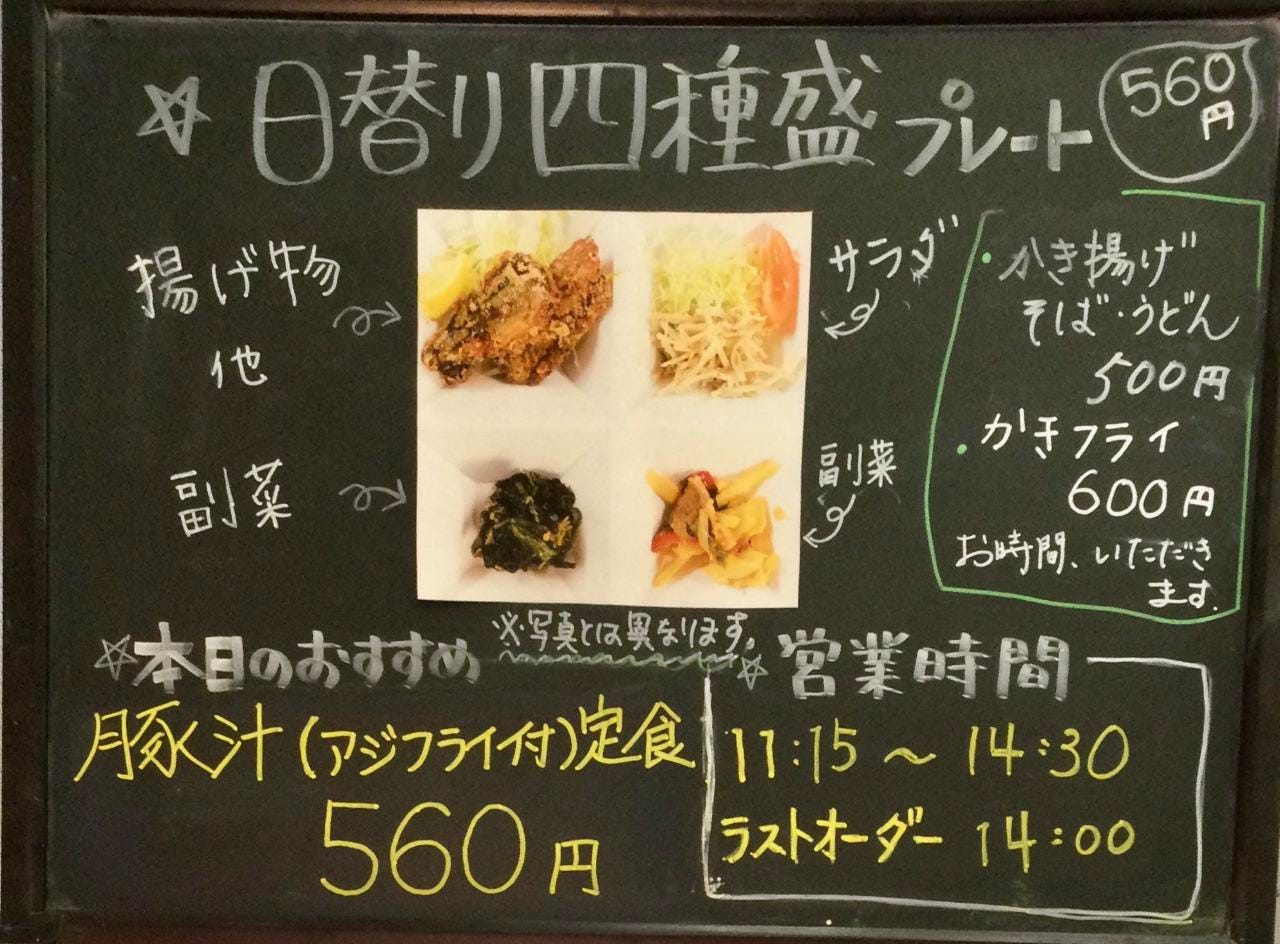 ☆日替り四種盛プレート
560
円
揚げ物
他
副菜
サラダ
副菜
・かき揚げ
そば・うどん
500円
・かきフライ
600円
お時間、いただき
ます.
※写真とは異なります。
☆本日のおすすめ
豚汁(アジフライ付)定食
560円
☆営業時間
11:15～14:30
ラストオーダー 14:00